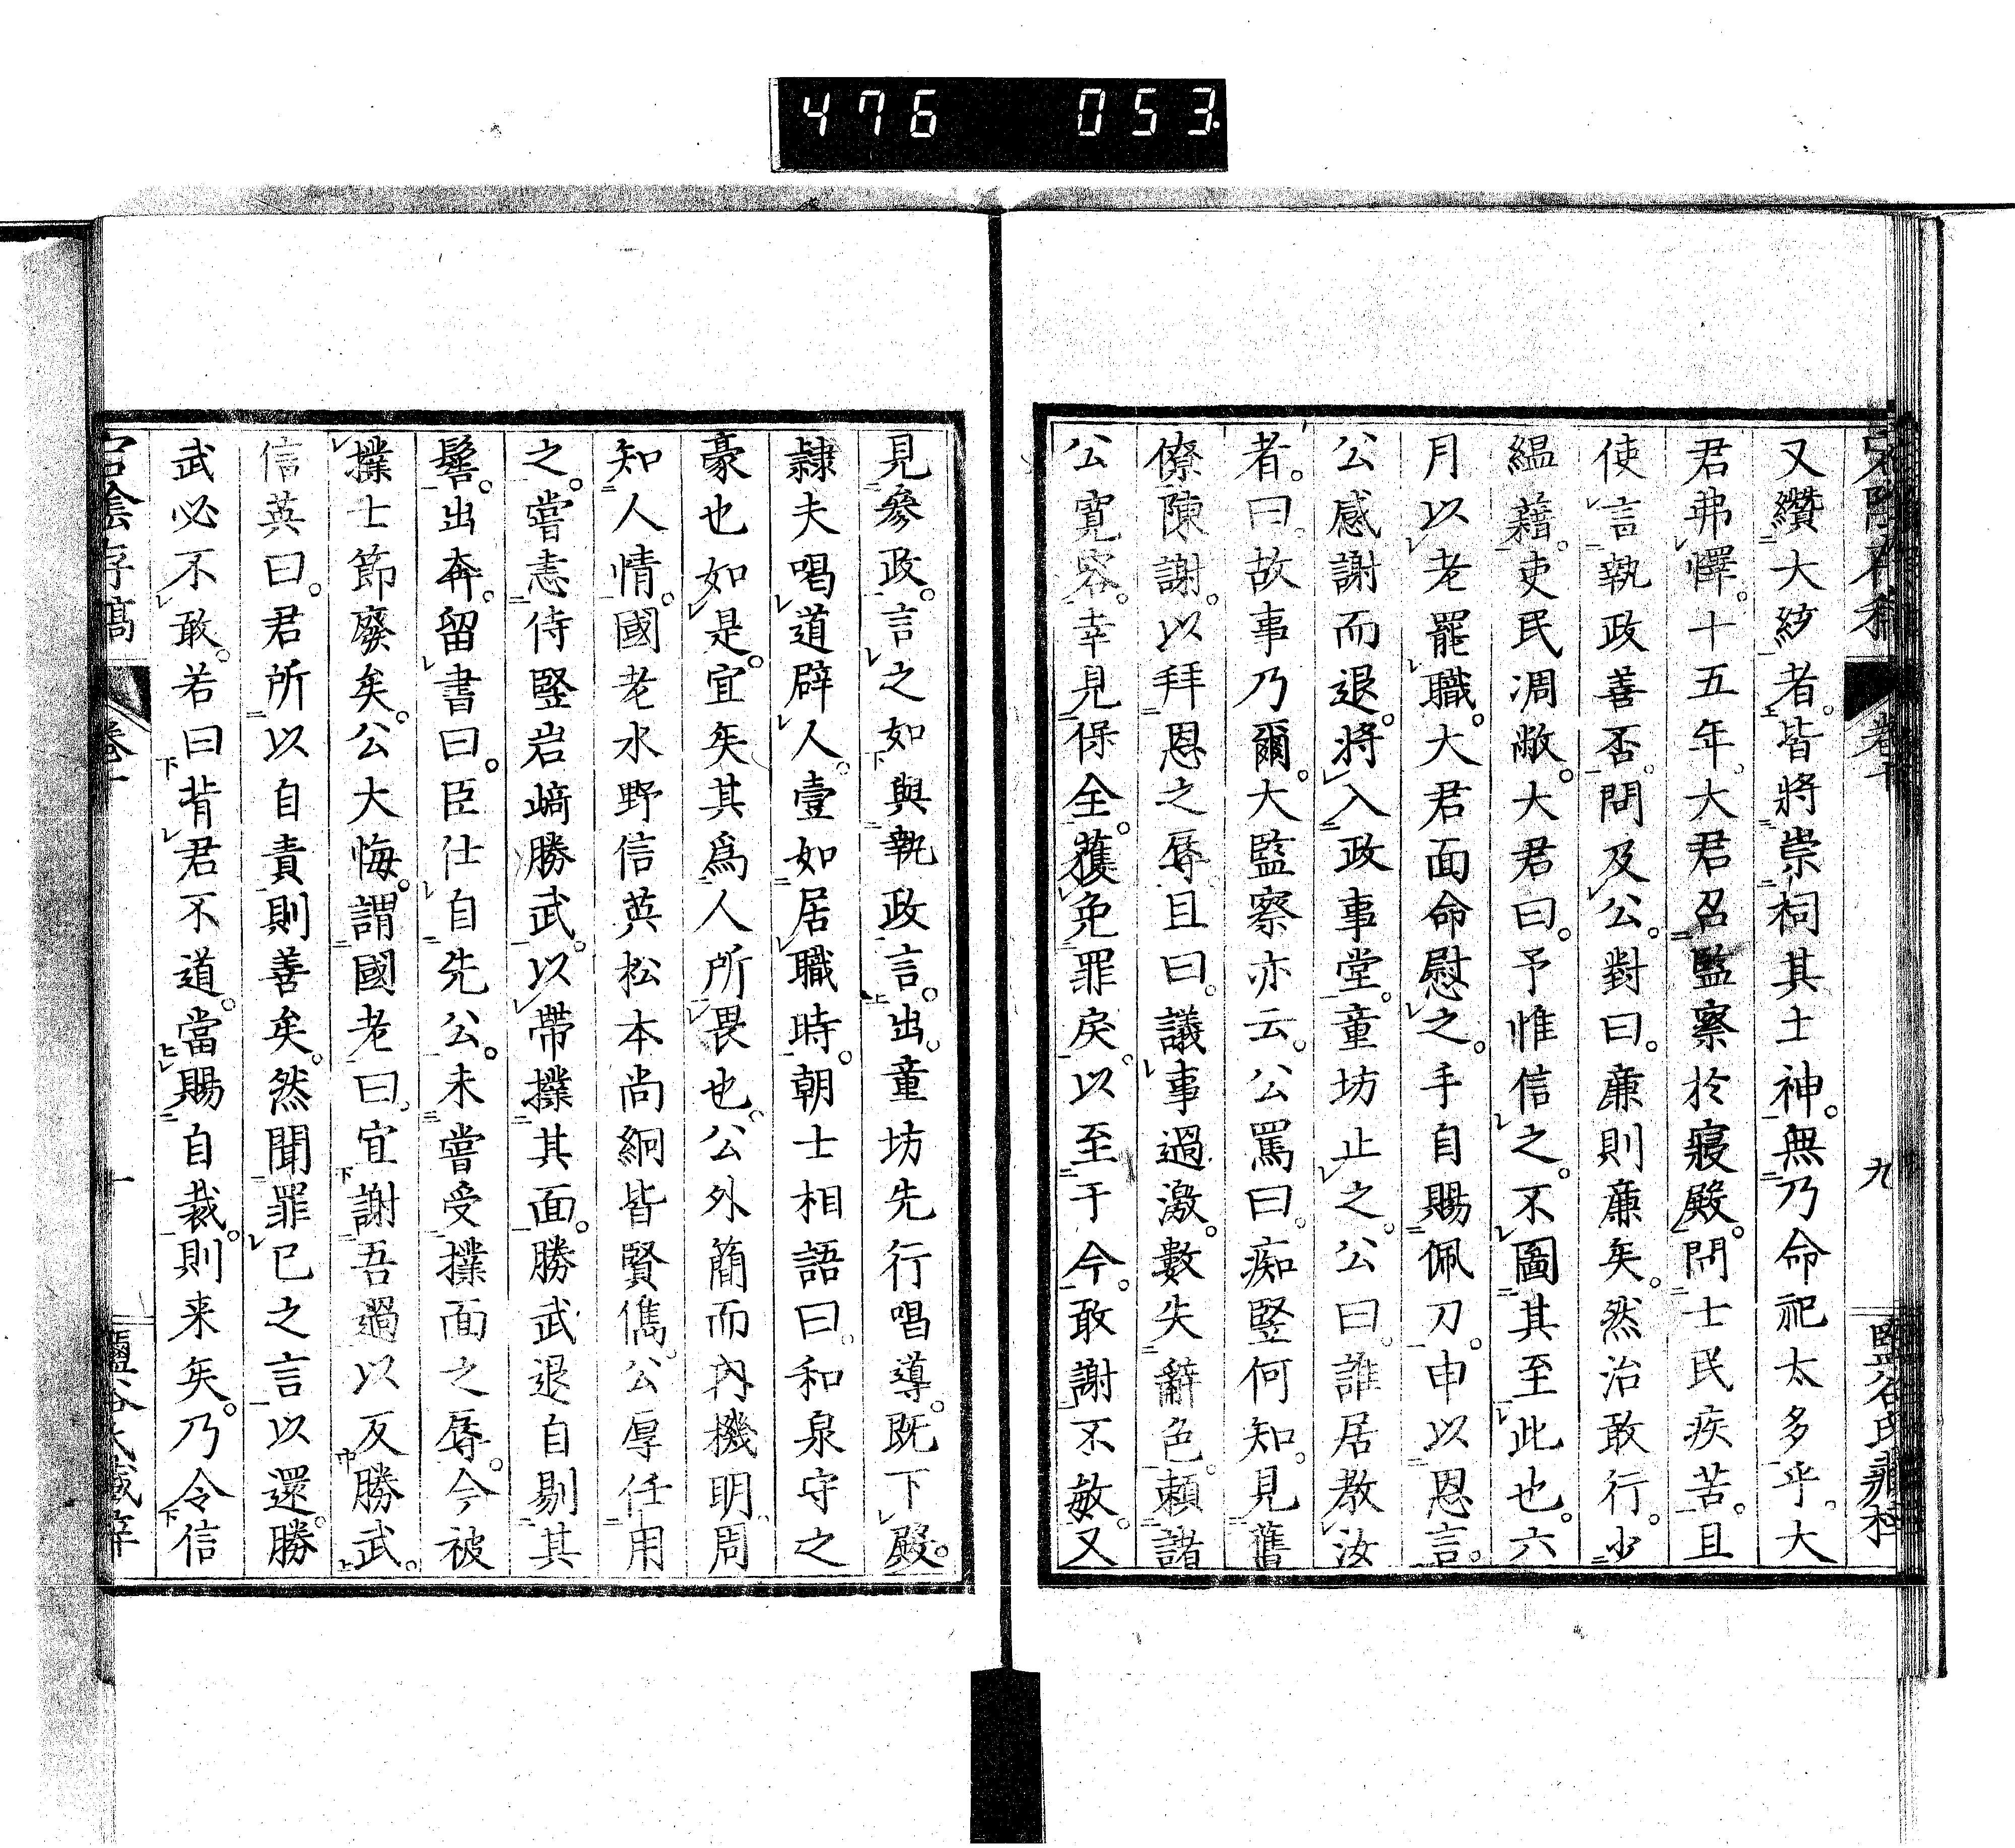 476 053
又纘大紡者。皆將崇祠其士神。無乃命祀太多乎。大
君弗懌。十五年。大君召監察於寢殿。問士民疾苦。且
使言執政善否。問及公。對曰。廉則廉矣。然治敢行。少
縕藉。吏民凋敝。大君曰。予惟信之。不圖其至此也。六
月以老罷職。大君面命慰之。手自賜佩刀。申以恩言。
公感謝而退。將入政事堂。童坊止之。公曰。誰居教汝
者。曰。故事乃爾。大監察亦云。公罵曰。痴豎何知。見舊
僚陳謝。以拜恩之辱。且曰。議事過激。數失辭色。賴諸
公寬容。幸見保全。獲免罪戾。以至于今。敢謝不敏。又
九
見參政。言之如與執政言。出。童坊先行唱導。既下殿。
隷夫喝道辟人。壹如居職時。朝士相語曰。和泉守之
豪也如是。宜矣其爲人所畏也。公外簡而內機明。周
知人情。國老水野信英松本尚絅皆賢儁。公厚任用
之。嘗恚侍豎岩﨑勝武。以帶撲其面。勝武退自剔其
髻。出奔。留書曰。臣仕自先公。未嘗受撲面之辱。今被
撲士節廢矣。公大悔。謂國老曰。宜謝吾過以反勝武。
信英曰。君所以自責則善矣。然聞罪已之言以還。勝
武必不敢。若曰背君不道。當賜自裁。則来矣。乃令信
宕陰存稿
卷十